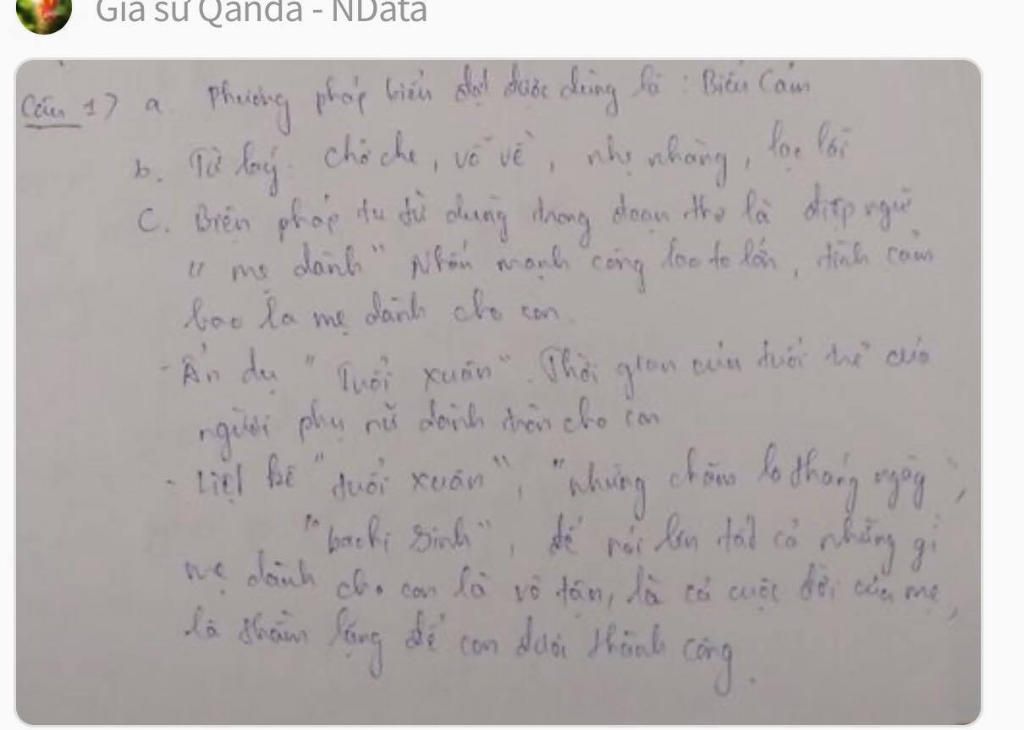 Gia sư Qanda - NData
Câu 1) a. Phương pháp biểu đạt được dùng là : Biểu Cảm
b. Từ láy. chở che, vỗ về, nhẹ nhàng, lạc lối
C. Biện pháp tu từ dùng trong đoạn thơ là điệp ngữ
"mẹ dành" Nhấn mạnh công lao to lớn, tình cảm
bao la mẹ dành cho con.
- Ẩn dụ "Tuổi xuân". Thời gian của tuổi trẻ của
người phụ nữ dành cho con
- Liệt kê "tuổi xuân", "những chăm lo tháng ngày",
sinh", để nói lên tất cả những gì
mẹ dành cho con là vô tận, là cả cuộc đời của mẹ,
là thầm lặng để con được thành công.